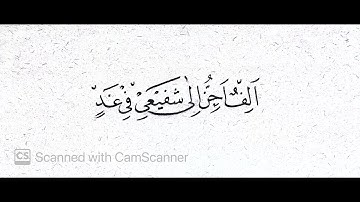 اَلِفٌ اَحِنُّ اِلىٰ شَفِيْعِيْ فِيْ غَدٍ
CS Scanned with CamScanner